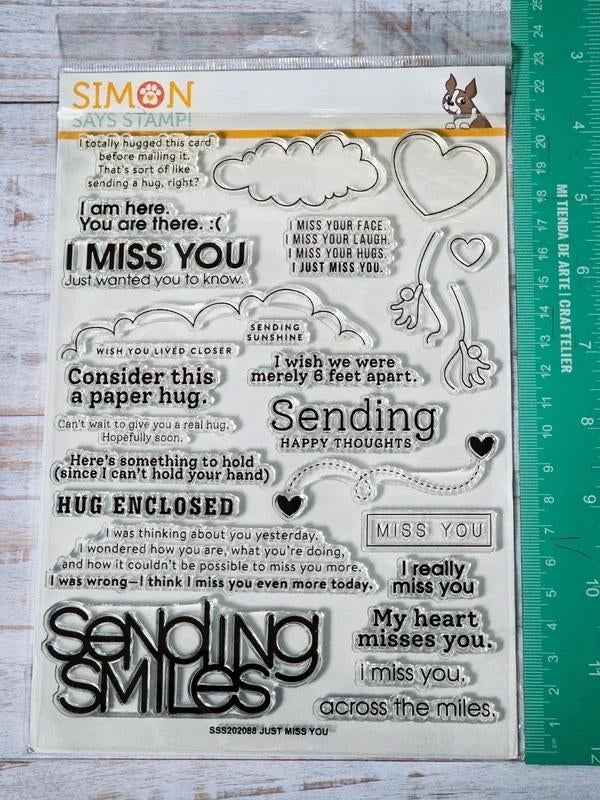 SIMON
SAYS STAMP!
I totally hugged this card
before mailing it.
That's sort of like
sending a hug, right?
I am here.
You are there. :(
I MISS YOUR FACE.
I MISS YOUR LAUGH.
I MISS YOUR HUGS.
I JUST MISS YOU.
I MISS YOU
Just wanted you to know.
SENDING
SUNSHINE
WISH YOU LIVED CLOSER
I wish we were
merely 6 feet apart.
Consider this
a paper hug.
Sending
HAPPY THOUGHTS
Can't wait to give you a real hug.
Hopefully soon.
Here's something to hold
(since I can't hold your hand)
HUG ENCLOSED
MISS YOU
I was thinking about you yesterday.
I wondered how you are, what you're doing,
and how it couldn't be possible to miss you more.
I was wrong—I think I miss you even more today.
I really
miss you
Sending
SMILes
My heart
misses you.
i miss you.
across the miles.
SSS202088 JUST MISS YOU
MI TIENDA DE ARTE | CRAFTELIER
25
24
23
22
21
20
19
18
17
16
15
14
13
12
11
10
9
8
7
6
5
4
3
2
1
cm
3
4
5
6
7
8
9
10
11
12